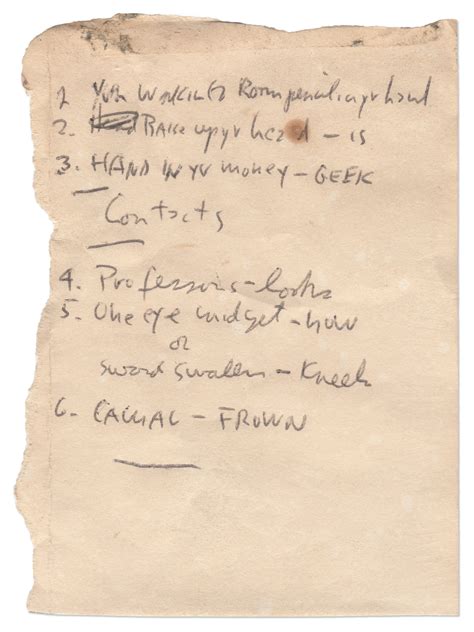 1 You WALK INTO Room pencil in yr hand
2. RAISE up yr head – is
3. HAND IN YR money – GEEK
Contacts
4. Professors – looks
5. One eye midget – now
or
sword swallow – Kneels
6. CAMAL – FROWN